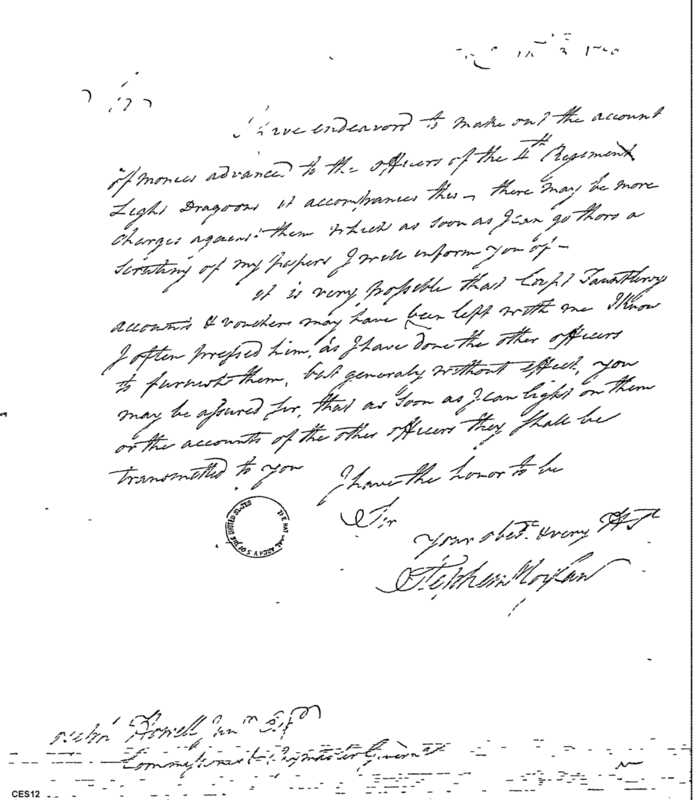 Sir
I have endeavord to make out the account
of monies advanced to the officers of the 4th Regiment
Light Dragoons it accompanies this – there may be more
charges against them which as soon as I can go thoro a
scrutiny of my papers I will inform you of –
it is very possible that Capt Fauntleroys
accounts & vouchers may have been left with me I know
I often pressed him, as I have done the other officers
to furnish them, but generaly without effect, you
may be assured Sir, that as soon as I can light on them
or the accounts of the other officers they shall be
transmitted to you
I have the honor to be
Sir
your obedt. & very H St
Stephen Moylan
THE NATIONAL ARCHIVES OF THE UNITED STATES
Howell Junr Esqr
Commissioner Paymaster General
CES12